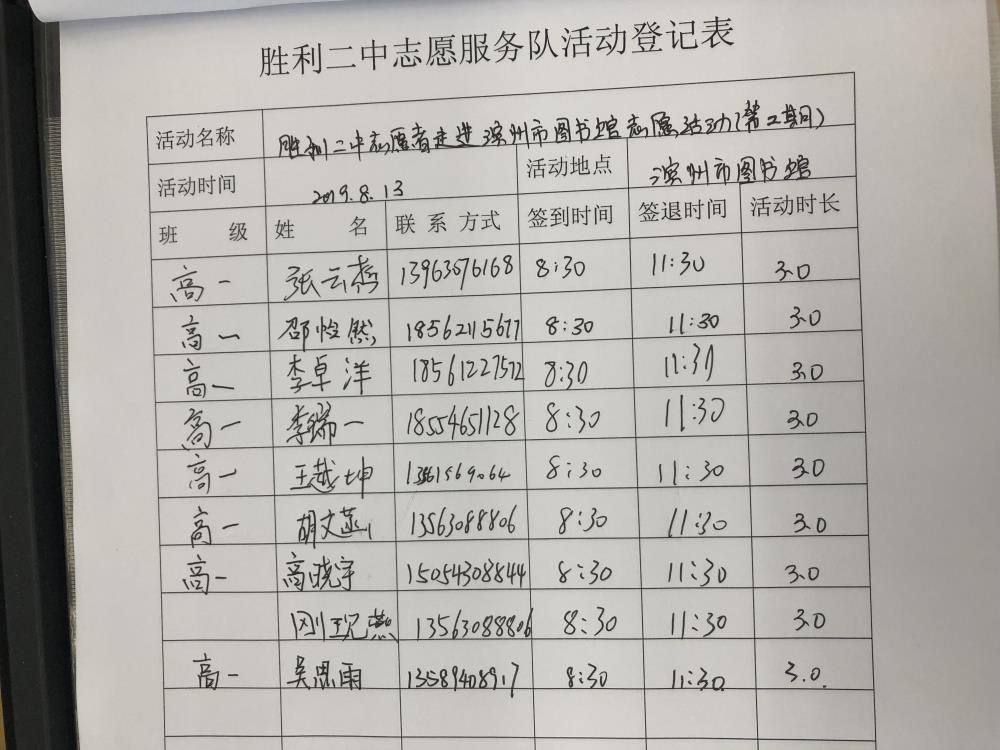 胜利二中志愿服务队活动登记表
活动名称 胜利二中志愿者走进滨州市图书馆志愿活动(第二期)
活动时间 2019.8.13 活动地点 滨州市图书馆
班 级 姓 名 联 系 方式 签到时间 签退时间 活动时长
高一 张云 13963576168 8:30 11:30 3.0
高一 邵怡然 18562115677 8:30 11:30 3.0
高一 李卓洋 18561227572 8:30 11:30 3.0
高一 李瑞一 18554651128 8:30 11:30 3.0
高一 王越坤 8:30 11:30 3.0
高一 胡文菡 13563088806 8:30 11:30 3.0
高一 高晓宇 15054308844 8:30 11:30 3.0
刚现燕 13563088806 8:30 11:30 3.0
高一 吴思雨 13589408917 8:30 11:30 3.0